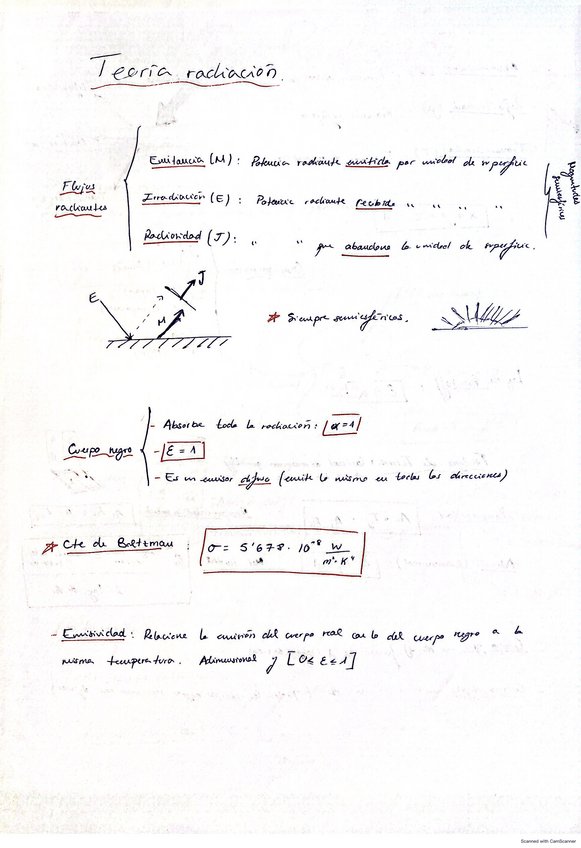 Teoría radiación.
Flujos radiantes
Emitancia (M): Potencia radiante emitida por unidad de superficie
Irradiación (E): Potencia radiante recibida " " " "
Radiosidad (J): " " que abandona la unidad de superficie.
Magnitudes semiesféricas
E
M
J
* Siempre semiesféricas.
Cuerpo negro
- Absorbe toda la radiación: α=1
- ε = 1
- Es un emisor difuso (emite lo mismo en todas las direcciones)
* Cte de Boltzman : σ = 5'678 · 10⁻⁸ W/m²·K⁴
- Emisividad: Relaciona la emisión del cuerpo real con la del cuerpo negro a la
misma temperatura. Adimensional y [0 ≤ ε ≤ 1]
Scanned with CamScanner